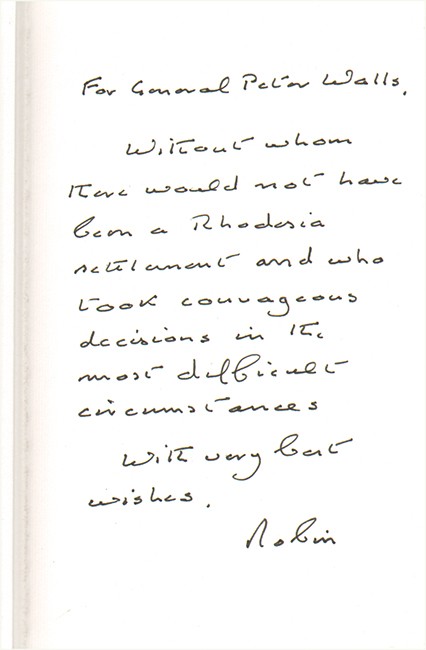 For General Peter Walls,
Without whom
there would not have
been a Rhodesia
settlement and who
took courageous
decisions in the
most difficult
circumstances
With very best
wishes.
Robin